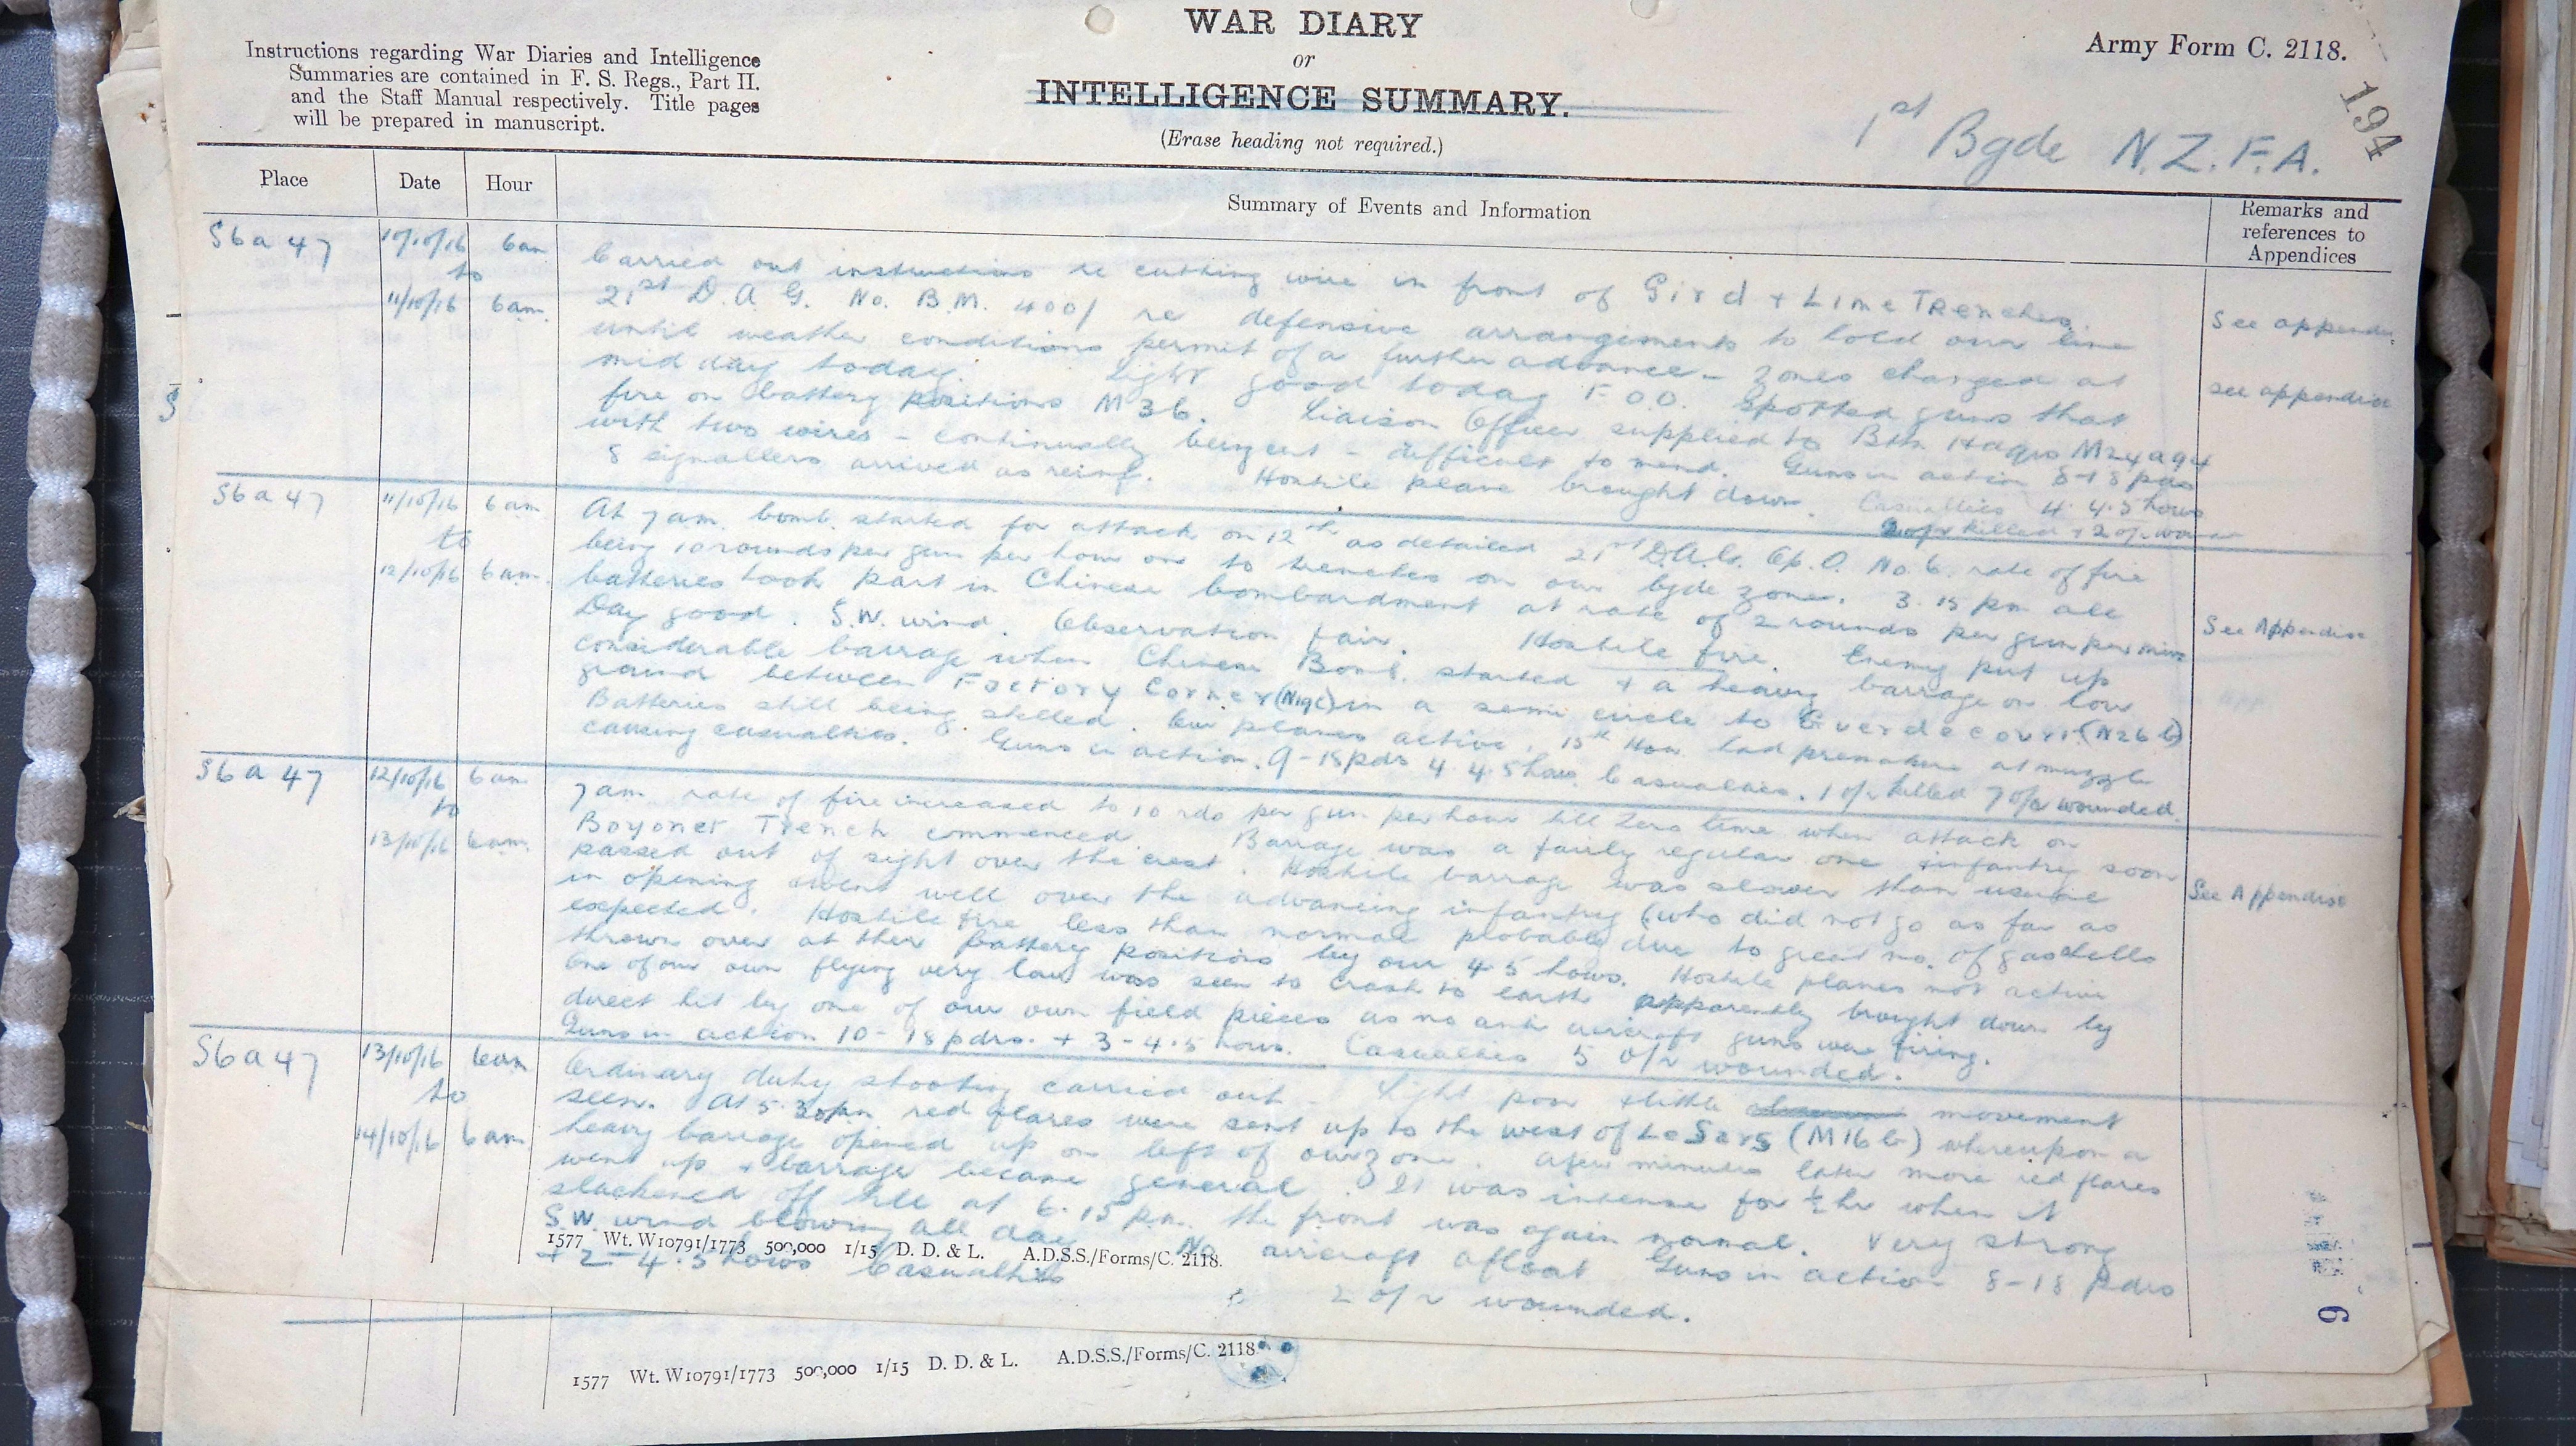 WAR DIARY
or
INTELLIGENCE SUMMARY.
(Erase heading not required.)
Instructions regarding War Diaries and Intelligence
Summaries are contained in F. S. Regs., Part II.
and the Staff Manual respectively. Title pages
will be prepared in manuscript.
Army Form C. 2118.
194
1st Bgde N.Z.F.A.
Place Date Hour Summary of Events and Information Remarks and references to Appendices
S6a47 10/10/16 6am to 11/10/16 6am.
Carried out instructions re cutting wire in front of Gird + Lime Trenches.
21st D.A.G. No. B.M. 400/ re defensive arrangements to hold our line See appendix
until weather conditions permit of a further advance - Zones changed at
mid day today. Light good today F.O.O. spotted guns that see appendix
fire on battery positions M36. Liaison Officer supplied to Bth Hdqrs M24a94
with two wires - continually being cut - difficult to mend. Guns in action 8-18 pdrs
8 signallers arrived as reinf. Hostile plane brought down. Casualties 4 4.5 hows
2 o/r killed + 2 o/r
S6a47 11/10/16 6am to 12/10/16 6am.
At 7am. bomb. started for attack on 12th as detailed 21st D.A.G. Op. O. No 6. rate of fire
being 10 rounds per gun per hour on to trenches on our bgde zone. 3.15 pm all
batteries took part in Chinese bombardment at rate of 2 rounds per gun per min See Appendix
Day good. S.W. wind. Observation fair. Hostile fire. Enemy put up
considerable barrage when Chinese Bomb. started + a heavy barrage on low
ground between Factory Corner (N19c) in a semi circle to Guerdecourt (N26b)
Batteries still being shelled. Our planes active. 15th How had premature at muzzle
causing casualties. Guns in action. 9-18pdrs 4 4.5 hows. Casualties. 1 o/r killed 7 o/r wounded.
S6a47 12/10/16 6am to 13/10/16 6am.
7am rate of fire increased to 10 rds per gun per hour till Zero time when attack on
Bayonet Trench commenced. Barrage was a fairly regular one infantry soon
passed out of sight over the crest. Hostile barrage was slower than usual See Appendix
in opening + went well over the advancing infantry (who did not go as far as
expected. Hostile fire less than normal probably due to great no. of gas shells
thrown over at their battery positions by our 4.5 hows. Hostile planes not active
One of our own flying very low was seen to crash to earth apparently brought down by
direct hit by one of our own field pieces as no anti aircraft guns were firing.
Guns in action 10-18pdrs. + 3-4.5 hows. Casualties 5 o/r wounded.
S6a47 13/10/16 6am to 14/10/16 6am.
Ordinary duty shooting carried out - Light poor + little movement
seen. At 5.30pm red flares were sent up to the west of Le Sars (M16b) whereupon a
heavy barrage opened up on left of our zone. A few minutes later more red flares
went up + barrage became general. It was intense for ½ hr when it
slackened off till at 6.15 pm. the front was again normal. Very strong
S.W. wind blowing all day No aircraft afloat Guns in action 8-18 pdrs
+ 2-4.5 hows Casualties 2 o/r wounded.
1577 Wt. W10791/1773 500,000 1/15 D. D. & L. A.D.S.S./Forms/C. 2118.
1577 Wt. W10791/1773 500,000 1/15 D. D. & L. A.D.S.S./Forms/C. 2118.
9